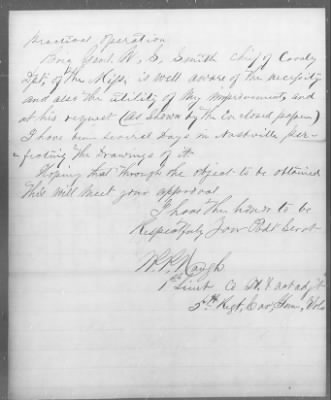 practical operation
Brig Genl. W. S. Smith Chief of Cavaly
Dpt. of the Miss. is well aware of the necessity
and also the utility of my improvement, and
at his request (as shown by the inclosed papers)
I have been several days in Nashville per-
fecting the drawings of it.
Hoping that through the object to be obtained
this will meet your approval
I have the honor to be
Respectfully Your Obdt Servt
1st Lieut Co act adjt
5th Regt, Cav, Tenn, Vols